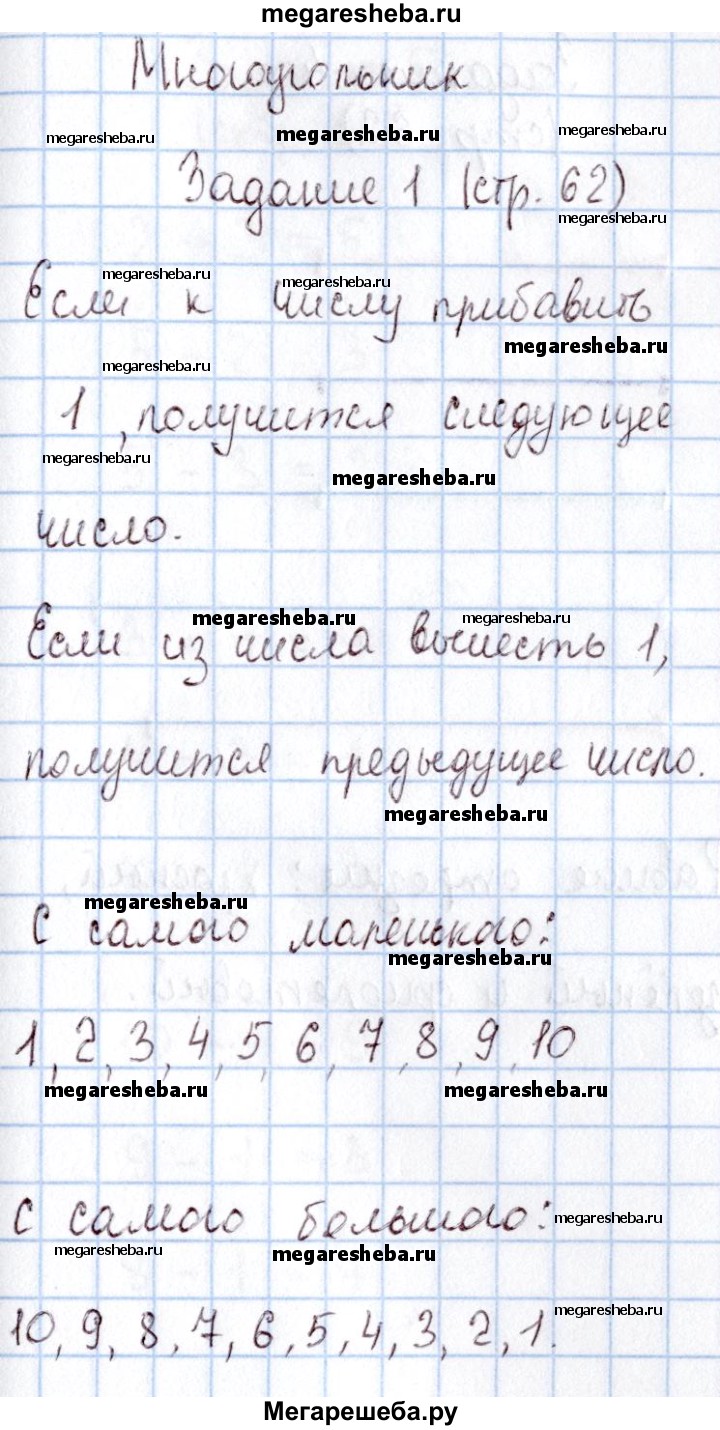 megaresheba.ru
Многоугольник
megaresheba.ru megaresheba.ru megaresheba.ru
Задание 1 (стр. 62)
megaresheba.ru
megaresheba.ru megaresheba.ru
Если к числу прибавить
megaresheba.ru
megaresheba.ru
1, получится следующее
megaresheba.ru megaresheba.ru
число.
megaresheba.ru megaresheba.ru
Если из числа вычесть 1,
получится предыдущее число.
megaresheba.ru
megaresheba.ru
С самого маленького:
megaresheba.ru
1, 2, 3, 4, 5, 6, 7, 8, 9, 10
megaresheba.ru megaresheba.ru
С самого большого:
megaresheba.ru
megaresheba.ru megaresheba.ru
megaresheba.ru
10, 9, 8, 7, 6, 5, 4, 3, 2, 1.
Мегарешеба.ру